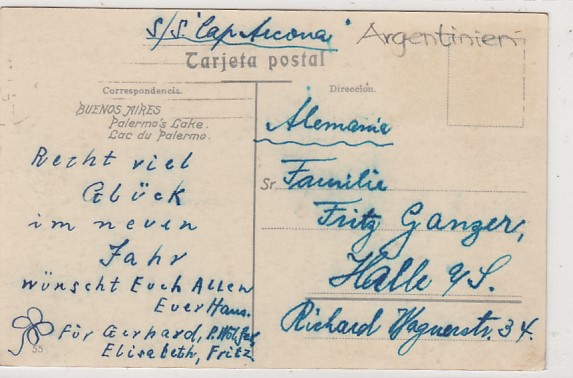 S/S. "Cap Arcona"
Argentinien
Tarjeta postal
Correspondencia.
Dirección.
BUENOS AIRES
Palermo's Lake.
Lac du Palermo.
Recht viel
Glück
im neuen
Jahr
wünscht Euch Allen
Euer Hans.
Für Gerhard,
Elisabeth, Fritz
55
Alemania
Sr. Familie
Fritz Ganzer,
Halle a/S.
Richard Wagnerstr. 34.